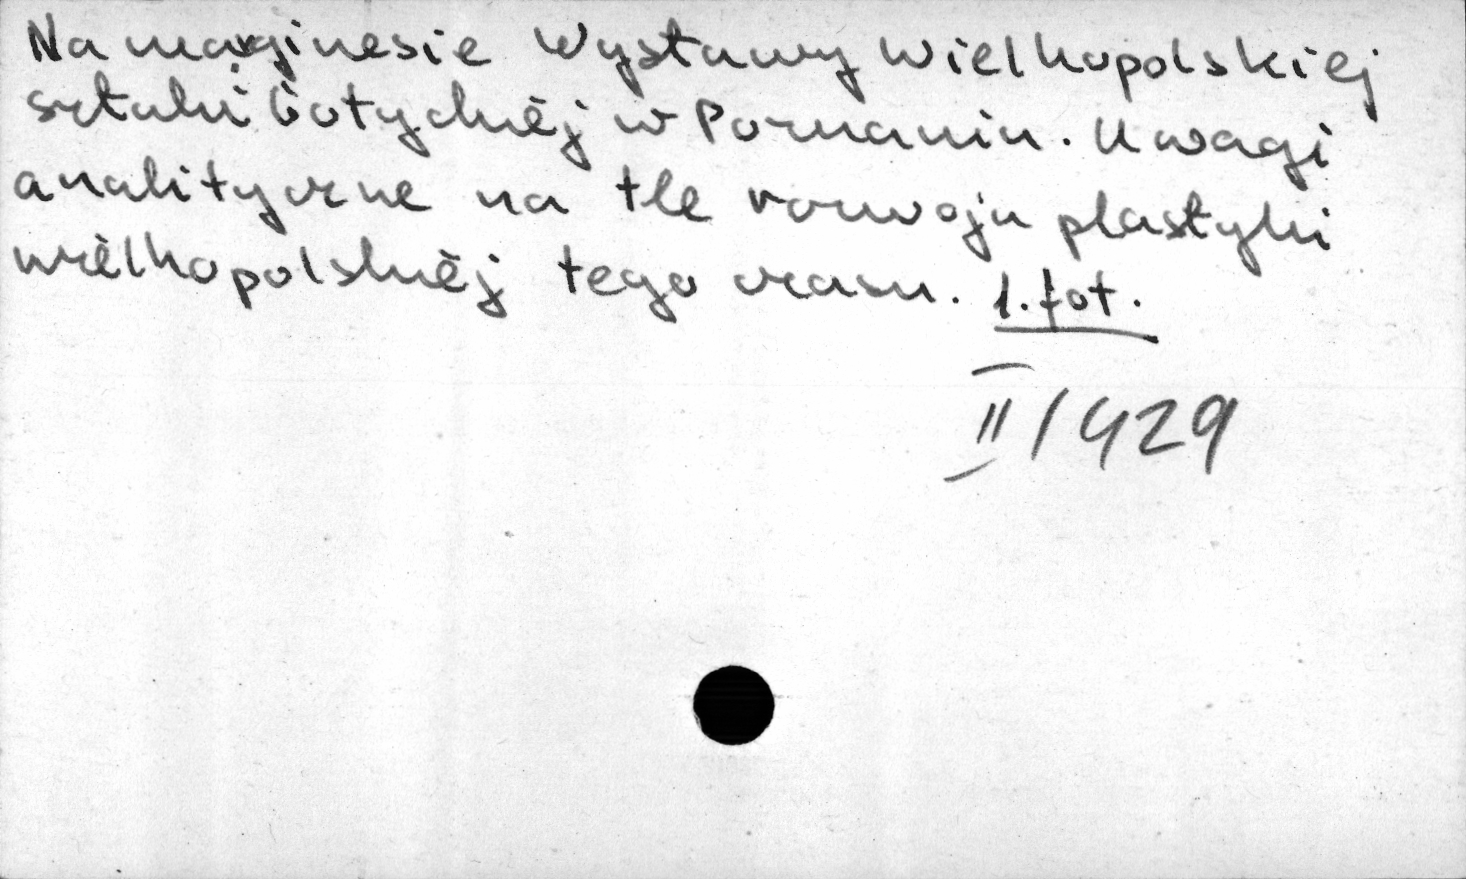 Na marginesie Wystawy Wielkopolskiej
sztuki Gotyckiej w Poznaniu. Uwagi
analityczne na tle rozwoju plastyki
wielkopolskiej tego czasu. 1.fot.
II/429